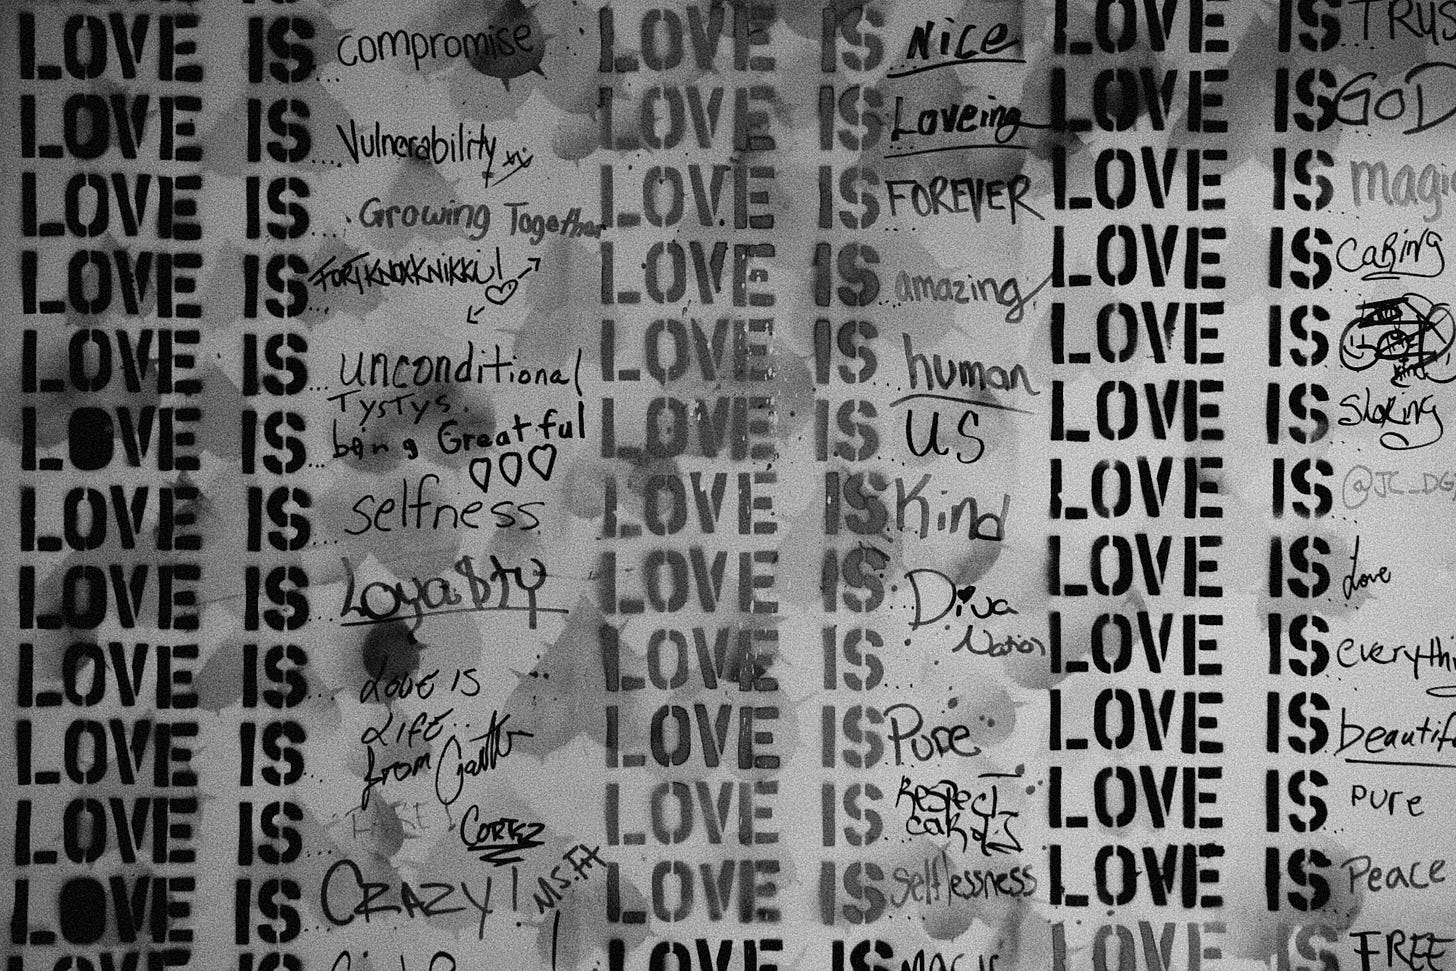 LOVE IS... compromise
LOVE IS.... Vulnerability
LOVE IS.... Growing Together
LOVE IS... FORTKNOXKNIKKU!
LOVE IS... unconditional
TYSTYS.
LOVE IS... being Greatful
LOVE IS.... selfness
LOVE IS.... Loya$ty
LOVE IS... Love is
LOVE IS... LIFE...
from
LOVE IS.... CORTEZ
LOVE IS... CRAZY! M.S.FIT
LOVE IS
LOVE IS... Nice
LOVE IS Loveing
LOVE IS... FOREVER
LOVE IS... amazing
LOVE IS... human
LOVE IS... US
LOVE IS Kind
LOVE IS... Diva
Nation
LOVE IS...
LOVE IS Pure
LOVE IS... Respect
LOVE IS selflessness
LOVE IS MAGIC
LOVE IS... TRUS
LOVE IS GOD
LOVE IS... magi
LOVE IS... caring
LOVE IS
LOVE IS... Sharing
LOVE IS... @JC_DG
LOVE IS... Love
LOVE IS... everythi
LOVE IS... beautif
LOVE IS... pure
LOVE IS... Peace
LOVE IS FREE